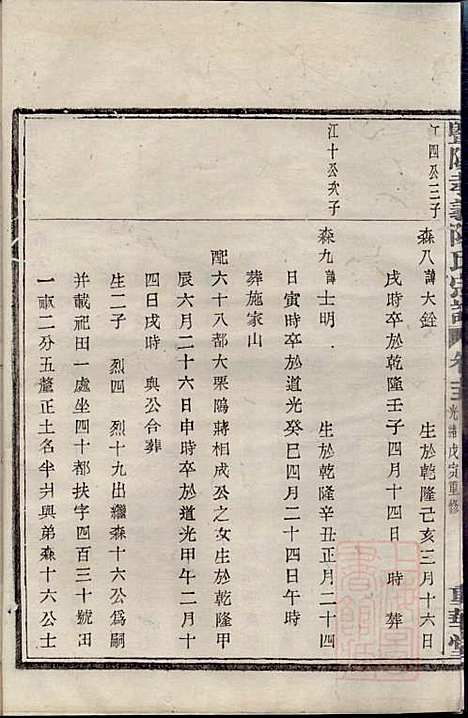 暨陽孝義陳氏宗譜 卷十三 光緒戊寅重修 重華堂
江四公三子
森八諱大銓 生於乾隆己亥三月十六日
戌時卒於乾隆壬子四月十四日 時 葬
江十公次子
森九諱士明 生於乾隆辛丑正月二十四
日寅時卒於道光癸巳四月二十四日午時
葬施家山
配六十八都大栗隝蔣相成公之女生於乾隆甲
辰六月二十六日申時卒於道光甲午二月十
四日戌時 與公合葬
生二子 烈四 烈十九出繼森十六公爲嗣
幷載祀田一處坐四十都扶字四百三十號田
一畝二分五釐正土名半爿與弟森十六公士